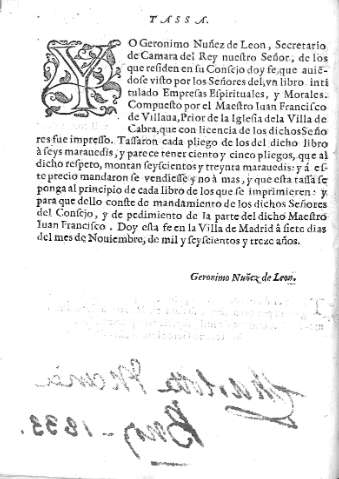 TASSA.
YO Geronimo Nuñez de Leon, Secretario
de Camara del Rey nuestro Señor, de los
que residen en su Consejo doy fe, que auié-
dose visto por los Señores del, vn libro inti
tulado Empresas Espirituales, y Morales.
Compuesto por el Maestro Iuan Francisco
de Villaua, Prior de la Iglesia dela Villa de
Cabra, que con licencia de los dichos Seño
res fue impresso. Tassaron cada pliego de los del dicho libro
à seys marauedis, y parece tener ciento y cinco pliegos, que al
dicho respeto, montan seyscientos y treynta marauedis: y á es-
te precio mandaron se vendiesse y no à mas, y que esta tassa se
ponga al principio de cada libro de los que se imprimieren: y
para que dello conste de mandamiento de los dichos Señores
del Consejo, y de pedimiento de la parte del dicho Maestro
Iuan Francisco. Doy esta fe en la Villa de Madrid â siete dias
del mes de Nouiembre, de mil y seyscientos y treze años.
Geronimo Nuñez de Leon.
1833.